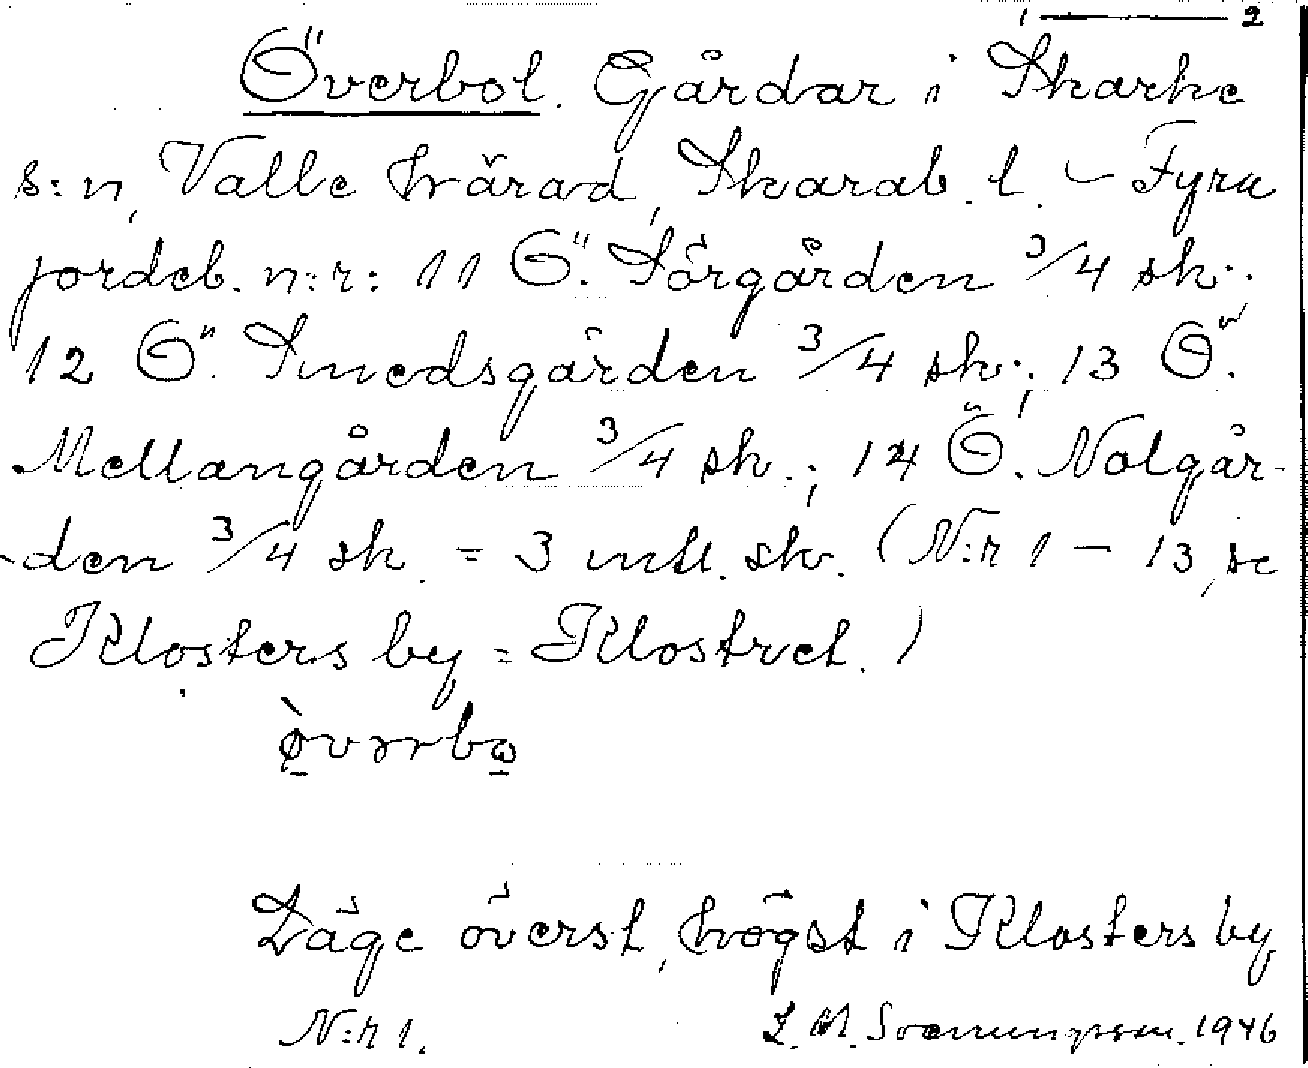 1 — 2
Överbol. Gårdar i Skarke
s:n, Valle härad, Skarab. l. – Fyra
jordeb. n:r: 11 Ö. Sörgården 3/4 sk.;
12 Ö. Smedsgården 3/4 sk.; 13 Ö.
Mellangården 3/4 sk.; 14 Ö. Nolgår-
-den 3/4 sk. = 3 mtl. sk. (N:r 1 – 13, se
Klosters by = Klostret.)
ò̱vrrbo̱
Läge överst, högst i Klosters by
N:r 1.
L. M. Svenungsson. 1946